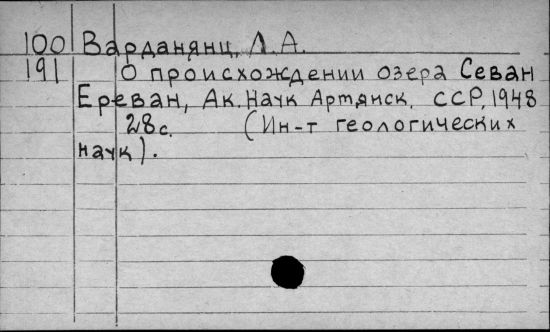 100 Варданянц, Л.А.
191 О происхождении озера Севан
Ереван, Ак. Наук Артянск. ССР, 1948
28с. (Ин-т геологических
наук).